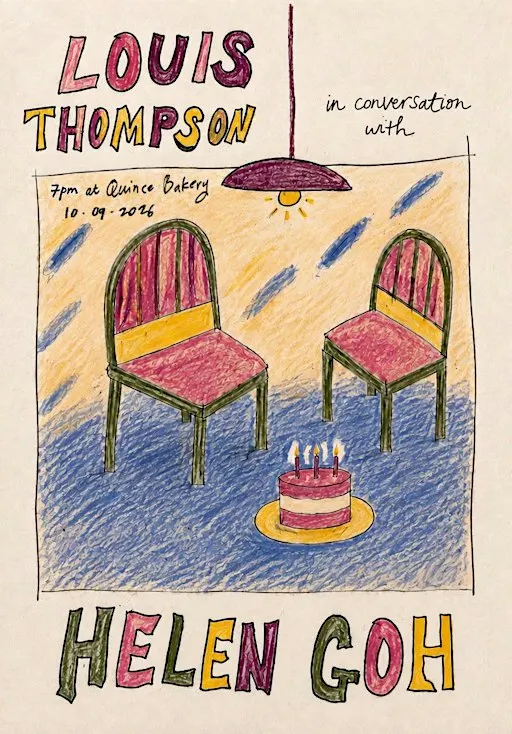 LOUIS
THOMPSON
in conversation
with
7pm at Quince Bakery
10.09.2026
HELEN GOH